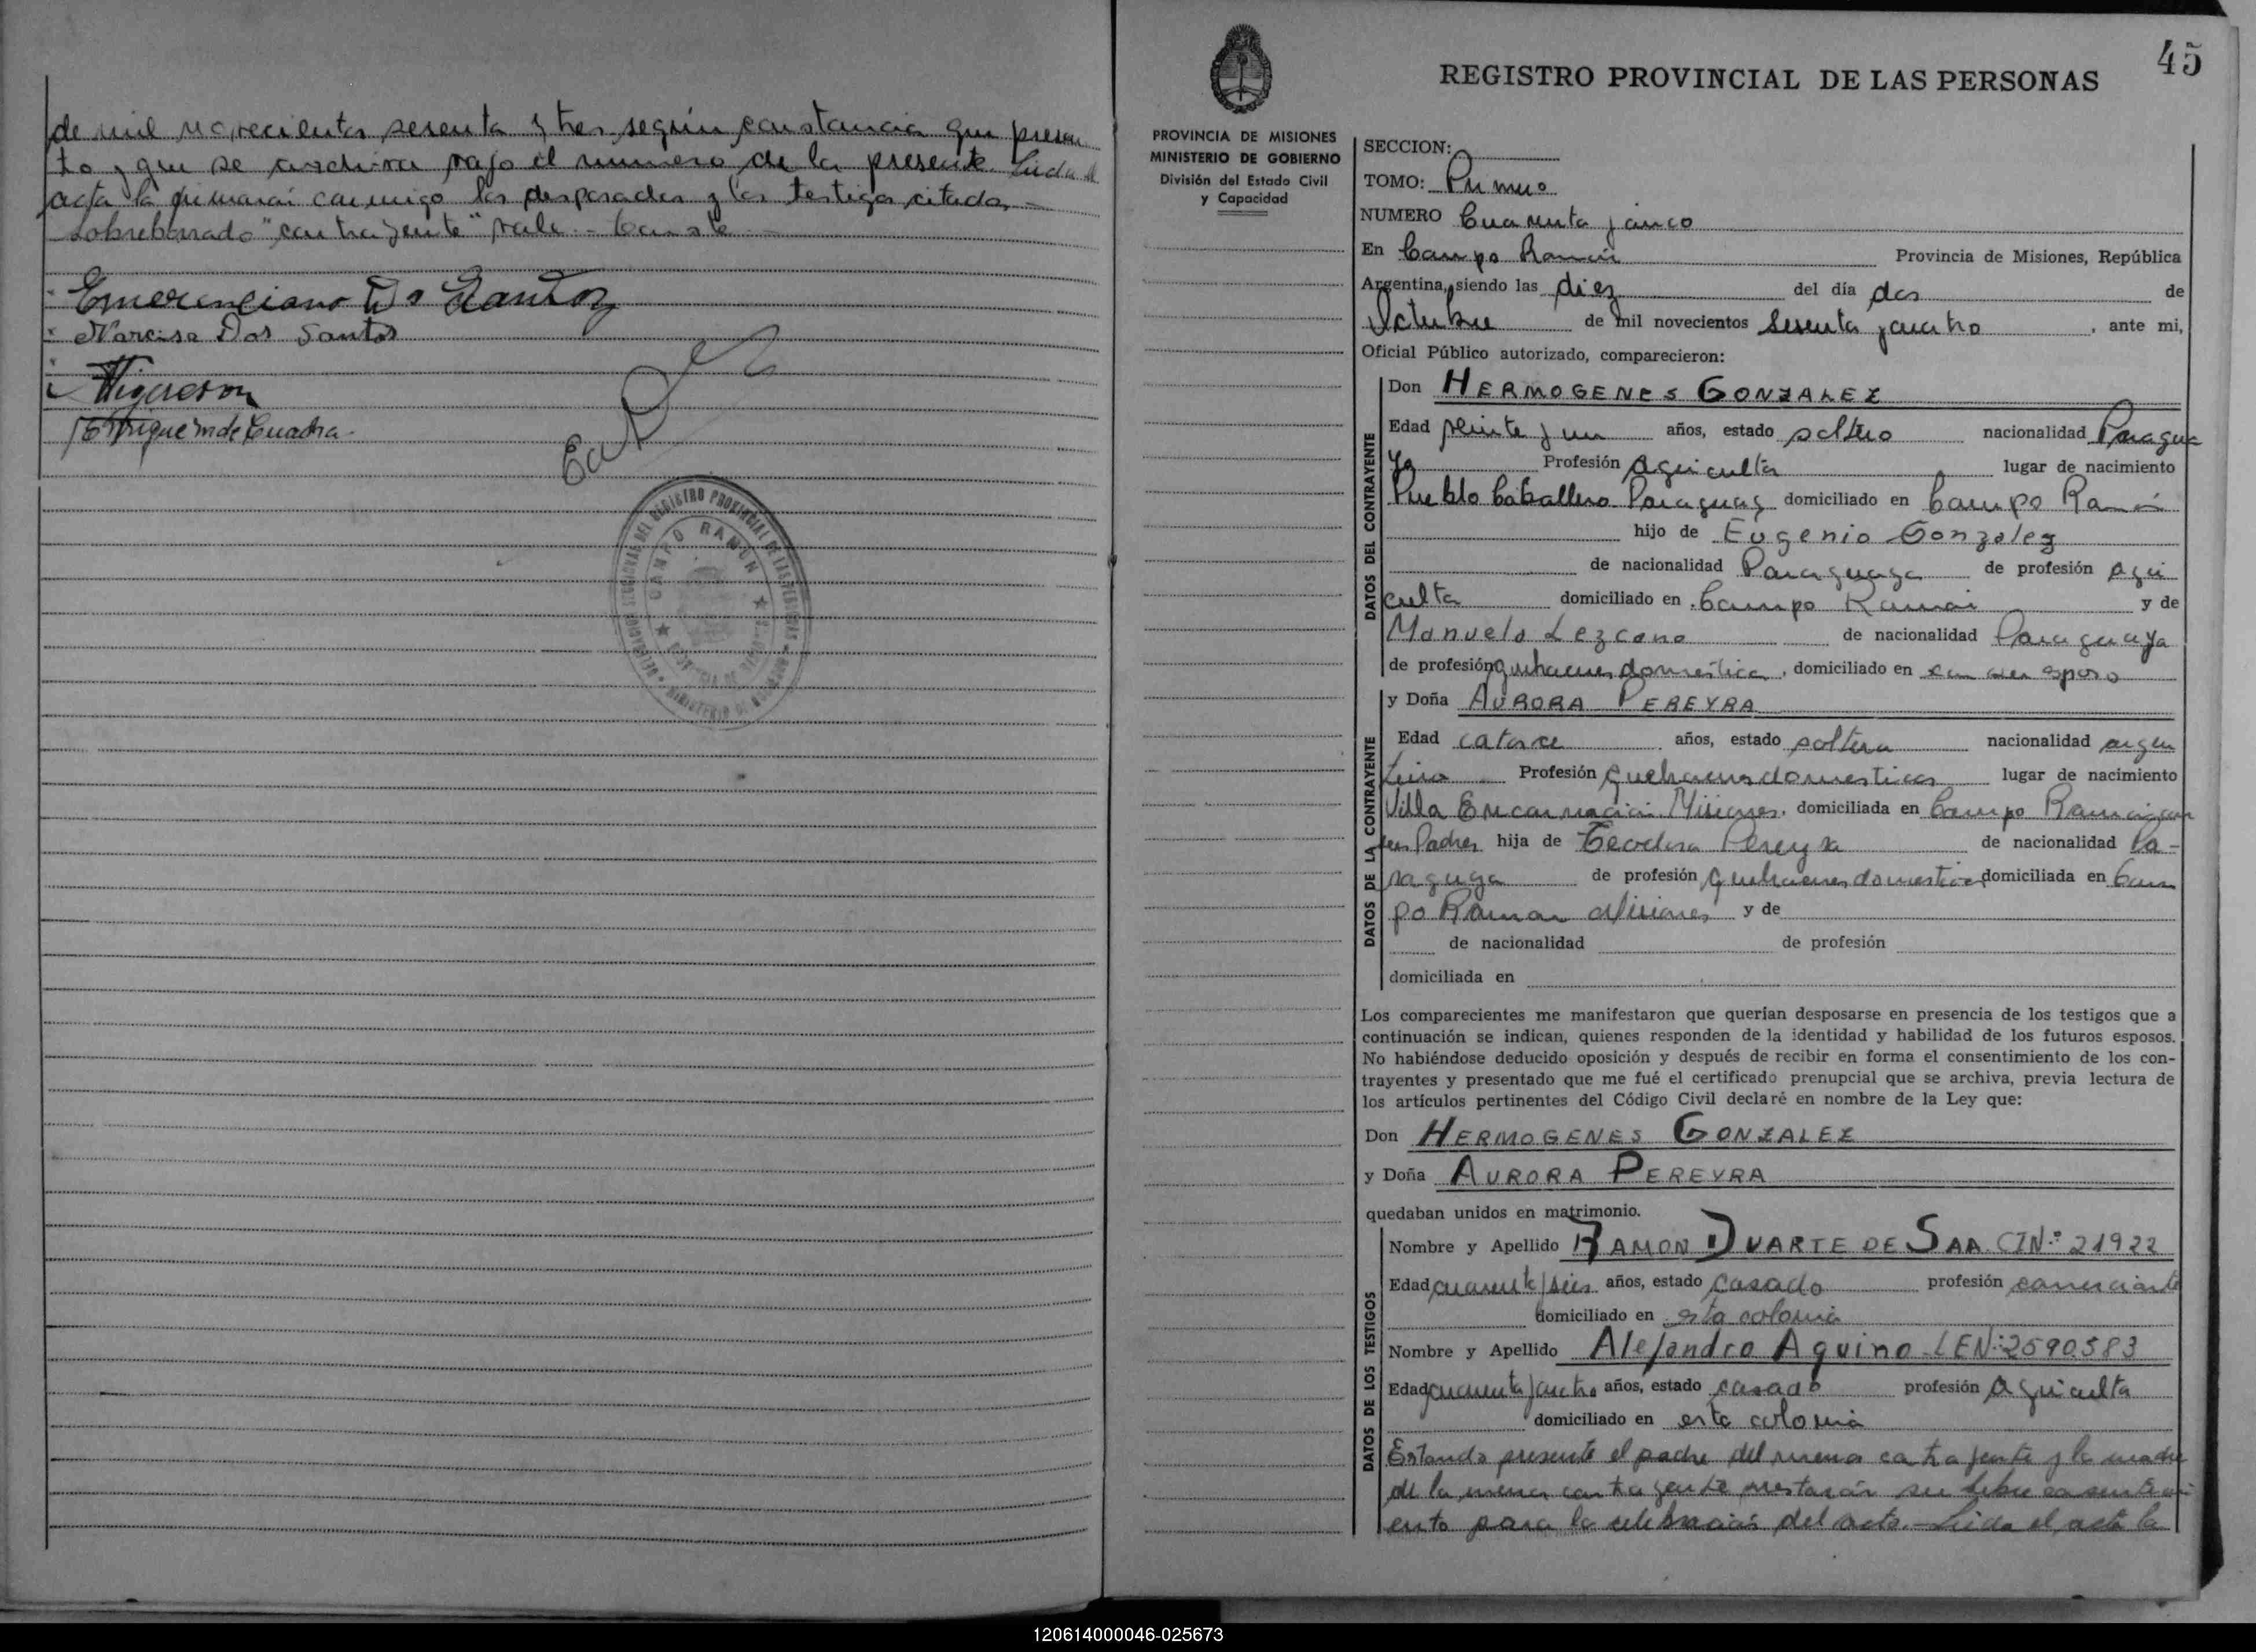 de mil novecientos sesenta y tres según constancia que presen
to y que se archiva bajo el numero de la presente. Leida el
acta la firmaron conmigo los desposados y los testigos citados.-
Sobreborrado "contrayente" vale.- Conste.-
Emerenciano Dos Santos
Narcisa Dos Santos
DELEGACION SECCIONAL DEL REGISTRO PROVINCIAL DE LAS PERSONAS
CAMPO RAMON
PROVINCIA DE MISIONES
MINISTERIO DE GOBIERNO
45
REGISTRO PROVINCIAL DE LAS PERSONAS
PROVINCIA DE MISIONES
MINISTERIO DE GOBIERNO
División del Estado Civil
y Capacidad
SECCION:
TOMO: Primero
NUMERO Cuarenta y cinco
En Campo Ramón Provincia de Misiones, República
Argentina, siendo las diez del día dos de
Octubre de mil novecientos Sesenta y cuatro, ante mi,
Oficial Público autorizado, comparecieron:
DATOS DEL CONTRAYENTE
Don HERMOGENES GONZALEZ
Edad veinte y un años, estado soltero nacionalidad Paragua
ya Profesión Agriculta lugar de nacimiento
Pueblo Caballero Paraguay domiciliado en Campo Ramón
hijo de Eugenio Gonzalez
de nacionalidad Paraguaya de profesión Agri
culta domiciliado en Campo Ramon y de
Manuela Lezcano de nacionalidad Paraguaya
de profesión quehaceres domestica, domiciliado en con su esposo
DATOS DE LA CONTRAYENTE
y Doña AURORA PEREYRA
Edad catorce años, estado soltera nacionalidad argen
tina Profesión Quehaceres domesticos lugar de nacimiento
Villa Encarnación Misiones, domiciliada en Campo Ramon con
sus Padres hija de Teodora Pereyra de nacionalidad Pa-
raguya de profesión Quehaceres domestico domiciliada en Cam
po Ramon Misiones y de
de nacionalidad de profesión
domiciliada en
Los comparecientes me manifestaron que querían desposarse en presencia de los testigos que a
continuación se indican, quienes responden de la identidad y habilidad de los futuros esposos.
No habiéndose deducido oposición y después de recibir en forma el consentimiento de los con-
trayentes y presentado que me fué el certificado prenupcial que se archiva, previa lectura de
los artículos pertinentes del Código Civil declaré en nombre de la Ley que:
Don HERMOGENES GONZALEZ
y Doña AURORA PEREYRA
quedaban unidos en matrimonio.
DATOS DE LOS TESTIGOS
Nombre y Apellido RAMON DUARTE DE SAA CIN.º 21922
Edad cuarenta y seis años, estado casado profesión comerciante
domiciliado en esta colonia
Nombre y Apellido Alejandro Aquino - LEN: 2590583
Edad cuarenta y cuatro años, estado casado profesión Agriculta
domiciliado en esta colonia
Estando presente el padre del menor contrayente y la madre
de la menor contrayente prestaron su libre consentimi
ento para la celebración del acto.- Leida el acta la
120614000046-025673